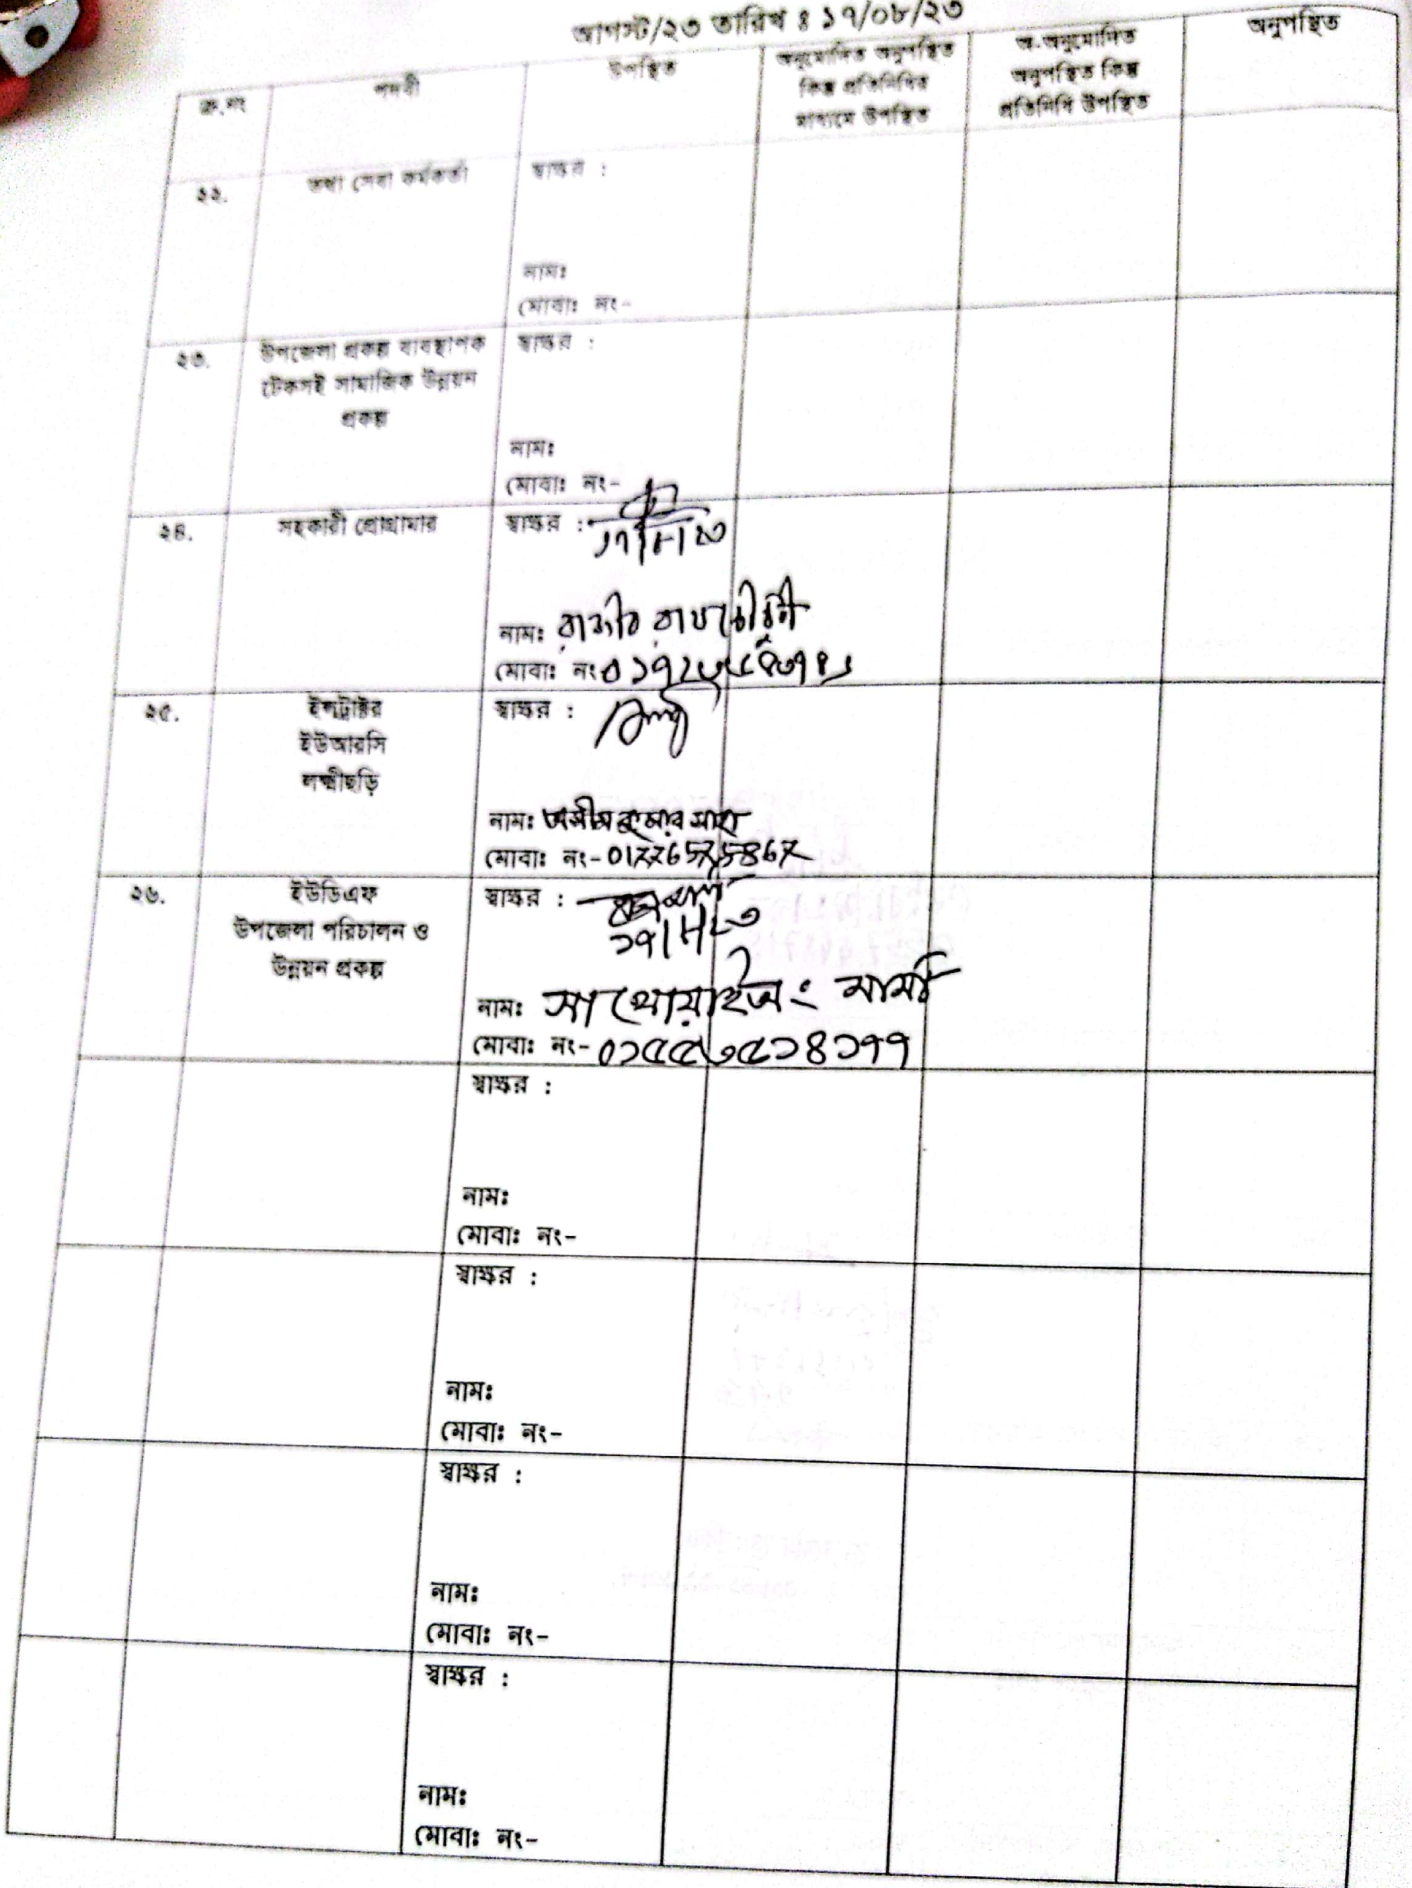 আগস্ট/২৩ তারিখ ঃ ১৭/০৮/২৩
ক্র.নং
পদবী
উপস্থিত
অনুমোদিত অনুপস্থিত
কিন্তু প্রতিনিধির
মাধ্যমে উপস্থিত
অ-অনুমোদিত
অনুপস্থিত কিন্তু
প্রতিনিধি উপস্থিত
অনুপস্থিত
২২.
তথ্য সেবা কর্মকর্তা
স্বাক্ষর :
নামঃ
মোবাঃ নং-
২৩.
উপজেলা প্রকল্প ব্যবস্থাপক
টেকসই সামাজিক উন্নয়ন
প্রকল্প
স্বাক্ষর :
নামঃ
মোবাঃ নং-
২৪.
সহকারী প্রোগ্রামার
স্বাক্ষর :
১৭/৮/২৩
নামঃ রাজীব রায় চৌধুরী
মোবাঃ নং
২৫.
ইন্সট্রাক্টর
ইউআরসি
লক্ষীছড়ি
স্বাক্ষর :
নামঃ অসীম কুমার সাহা
মোবাঃ নং-
২৬.
ইউডিএফ
উপজেলা পরিচালন ও
উন্নয়ন প্রকল্প
স্বাক্ষর :
১৭/৮/২৩
নামঃ সা থোয়াইঅং মার্মা
মোবাঃ নং- ০১৫৫৬৫১৪১৭৭
স্বাক্ষর :
নামঃ
মোবাঃ নং-
স্বাক্ষর :
নামঃ
মোবাঃ নং-
স্বাক্ষর :
নামঃ
মোবাঃ নং-
স্বাক্ষর :
নামঃ
মোবাঃ নং-